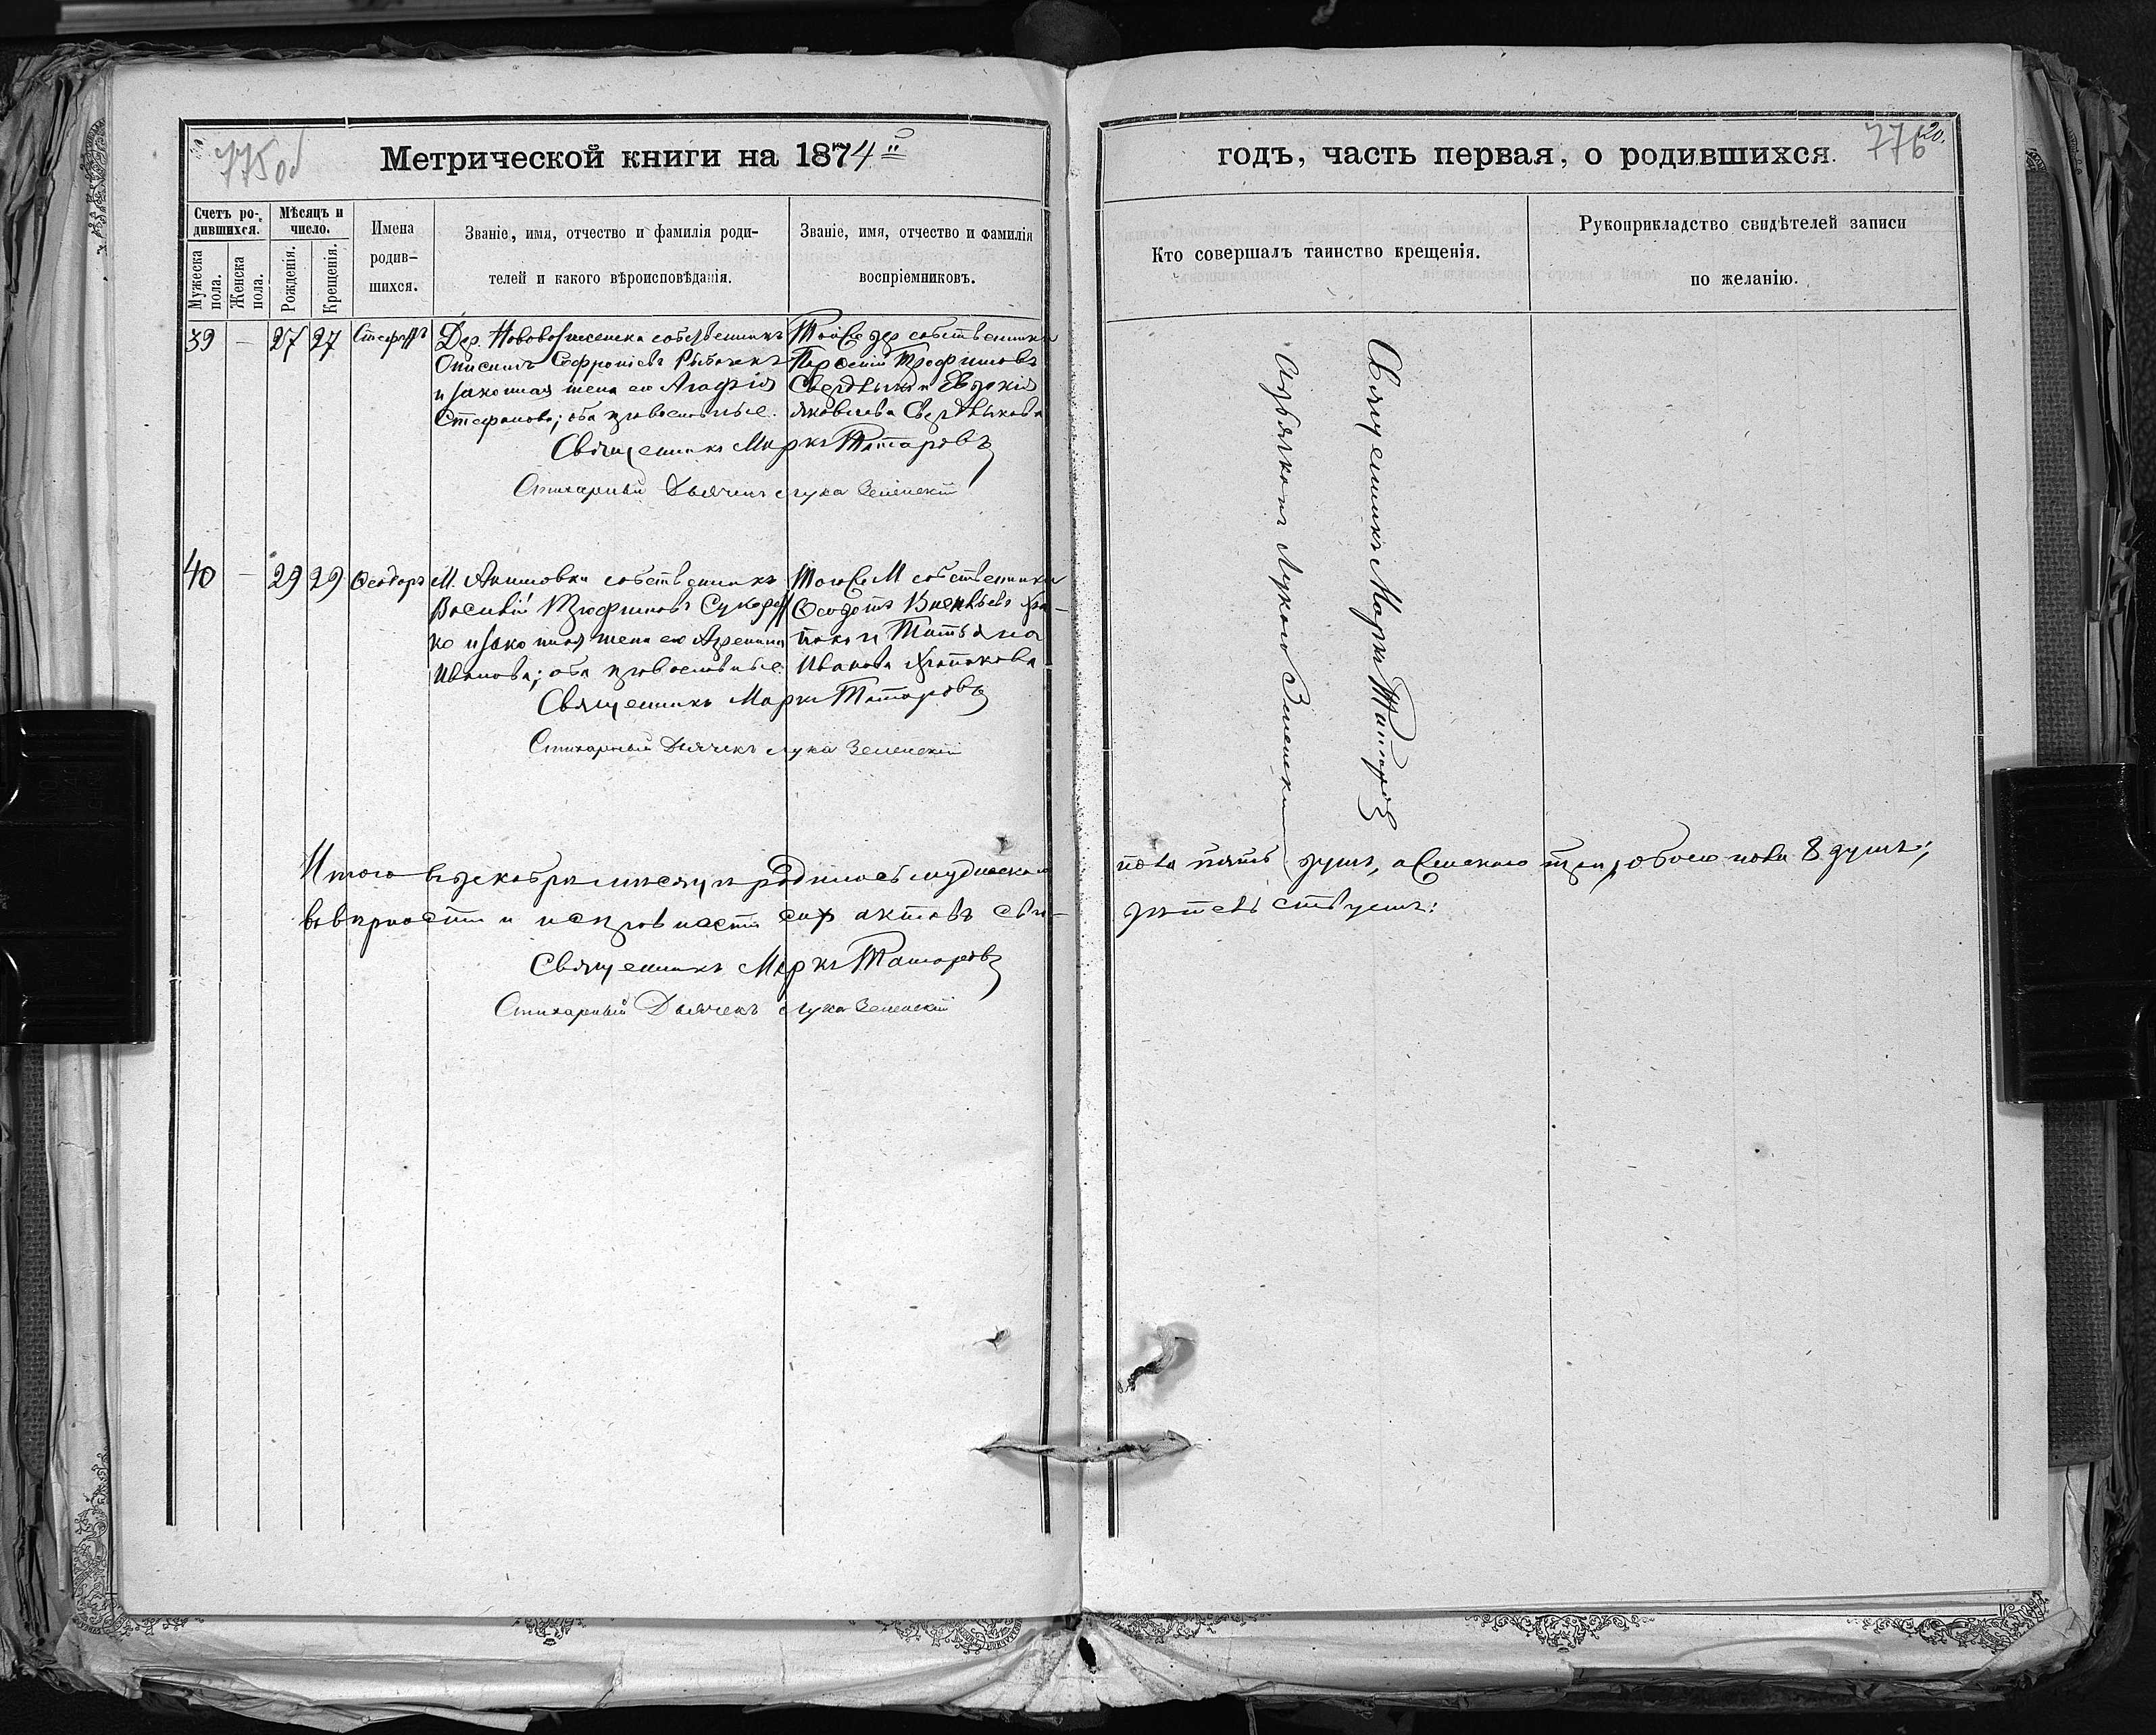 775об
Метрической книги на 1874й
Счетъ ро-дившихся.
Мѣсяцъ и число.
Мужеска пола.
Женска пола.
Рожденія.
Крещенія.
Имена родив-шихся.
Званіе, имя, отчество и фамилія роди-
телей и какого вѣроисповѣданія.
Званіе, имя, отчество и фамилія
воспріемниковъ.
39 — 27 27 Стефанъ
Дер. собственникъ
Онисимъ Софроніевъ
и законная жена его Агафія
Стефанова; оба православные.
Той же дер собственникъ
Трофимовъ
и Евдокія
Яковлева
Священникъ Маркъ Татаровъ
Стихарный Дьячекъ Лука Зеленскій
40 — 29 29 Ѳеодоръ
М. Акимовки собственникъ
Василій Трофимовъ
ко и законная жена его
Иванова; оба православные
Того же М собственникъ
Ѳеодотъ
и Татьяна
Иванова
Священникъ Маркъ Татаровъ
Стихарный Дьячекъ Лука Зеленскій
Итого въ декабрѣ мѣсяцѣ родилось мужеска
вѣрности и исправности сихъ актовъ сви-
Священникъ Маркъ Татаровъ
Стихарный Дьячекъ Лука Зеленскій
776
20.
годъ, часть первая, о родившихся.
Кто совершалъ таинство крещенія.
Рукоприкладство свидѣтелей записи
по желанію.
Священникъ Маркъ Татаровъ
съ дьячкомъ Лукою Зеленскимъ
пола пять душъ, а женскаго три, обоего пола 8 душъ;
дѣтельствуемъ: